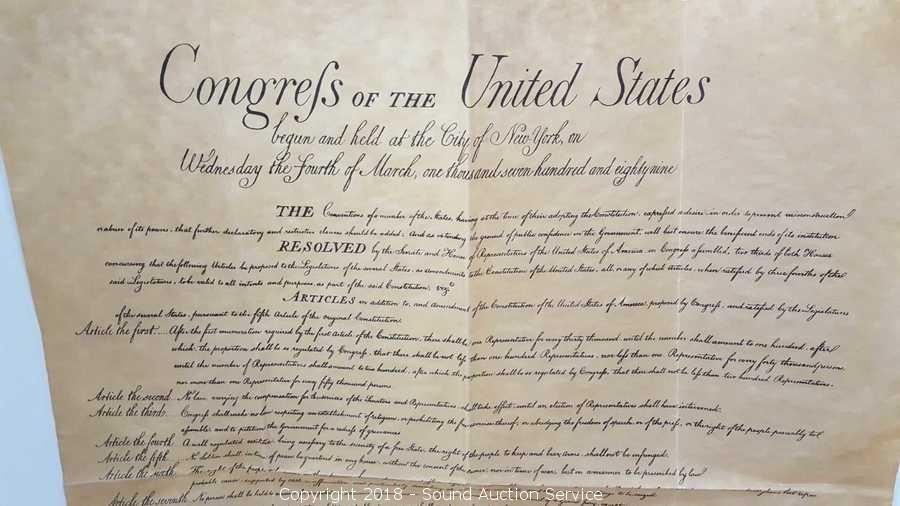 Congreſs OF THE United States
begun and held at the City of New York, on
Wednesday the Fourth of March, one thousand seven hundred and eighty nine
THE Conventions of a number of the States, having at the time of their adopting the Constitution, expreſsed a desire, in order to prevent misconstruction
or abuse of its powers, that further declaratory and restrictive clauses should be added: And as extending the ground of public confidence in the Government, will best ensure the beneficent ends of its institution
RESOLVED by the Senate and House of Representatives of the United States of America, in Congreſs aſsembled, two thirds of both Houses
concurring, that the following Articles be proposed to the Legislatures of the several States, as amendments to the Constitution of the United States, all, or any of which articles, when ratified by three fourths of the
said Legislatures, to be valid to all intents and purposes, as part of the said Constitution; vizt
ARTICLES in addition to, and amendment of the Constitution of the United States of America, proposed by Congreſs, and ratified by the Legislatures
of the several States, pursuant to the fifth Article of the original Constitution.
Article the first.... After the first enumeration required by the first Article of the Constitution, there shall be one Representative for every thirty thousand, until the number shall amount to one hundred, after
which, the proportion shall be so regulated by Congreſs, that there shall be not leſs than one hundred Representatives, nor leſs than one Representative for every forty thousand persons,
until the number of Representatives shall amount to two hundred, after which the proportion shall be so regulated by Congreſs, that there shall not be leſs than two hundred Representatives,
nor more than one Representative for every fifty thousand persons.
Article the second. No law, varying the compensation for the services of the Senators and Representatives, shall take effect, until an election of Representatives shall have intervened.
Article the third. Congreſs shall make no law respecting an establishment of religion, or prohibiting the free exercise thereof; or abridging the freedom of speech, or of the preſs, or the right of the people peaceably to
aſsemble, and to petition the Government for a redreſs of grievances.
Article the fourth. A well regulated militia, being neceſsary to the security of a free State, the right of the people to keep and bear arms, shall not be infringed.
Article the fifth. No Soldier shall, in time of peace be quartered in any house, without the consent of the owner, nor in time of war, but in a manner to be prescribed by law.
Article the sixth. The right of the people
probable cause, supported by
Article the seventh. No person shall be held to
Copyright 2018 - Sound Auction Service